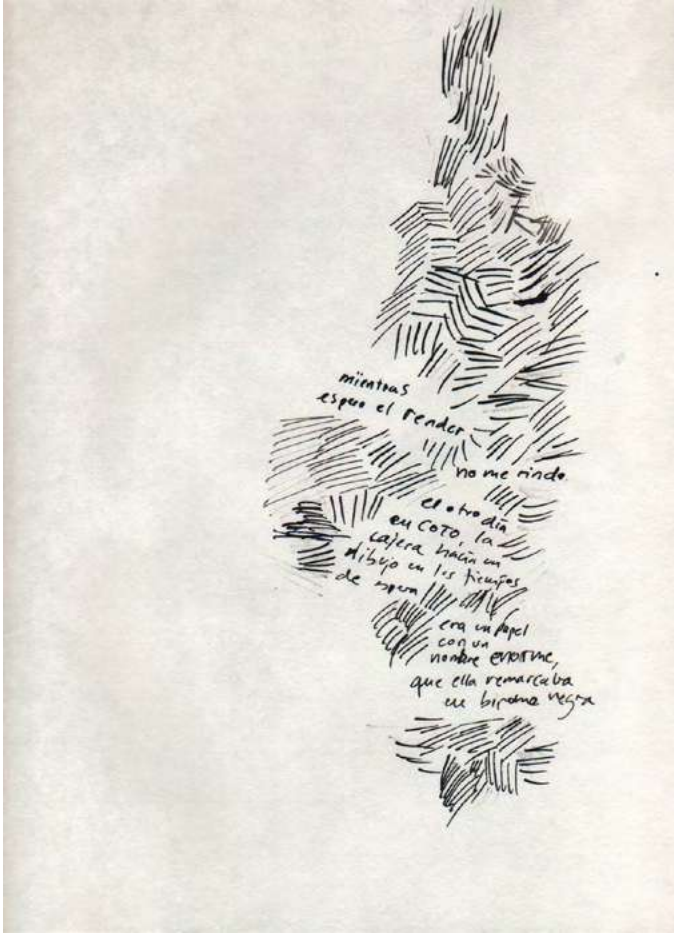 mientras
espero el render
no me rindo
el otro día
en COTO, la
cajera hacía un
dibujo en los tiempos
de espera
era un papel
con un
nombre enorme,
que ella remarcaba
en birome negra